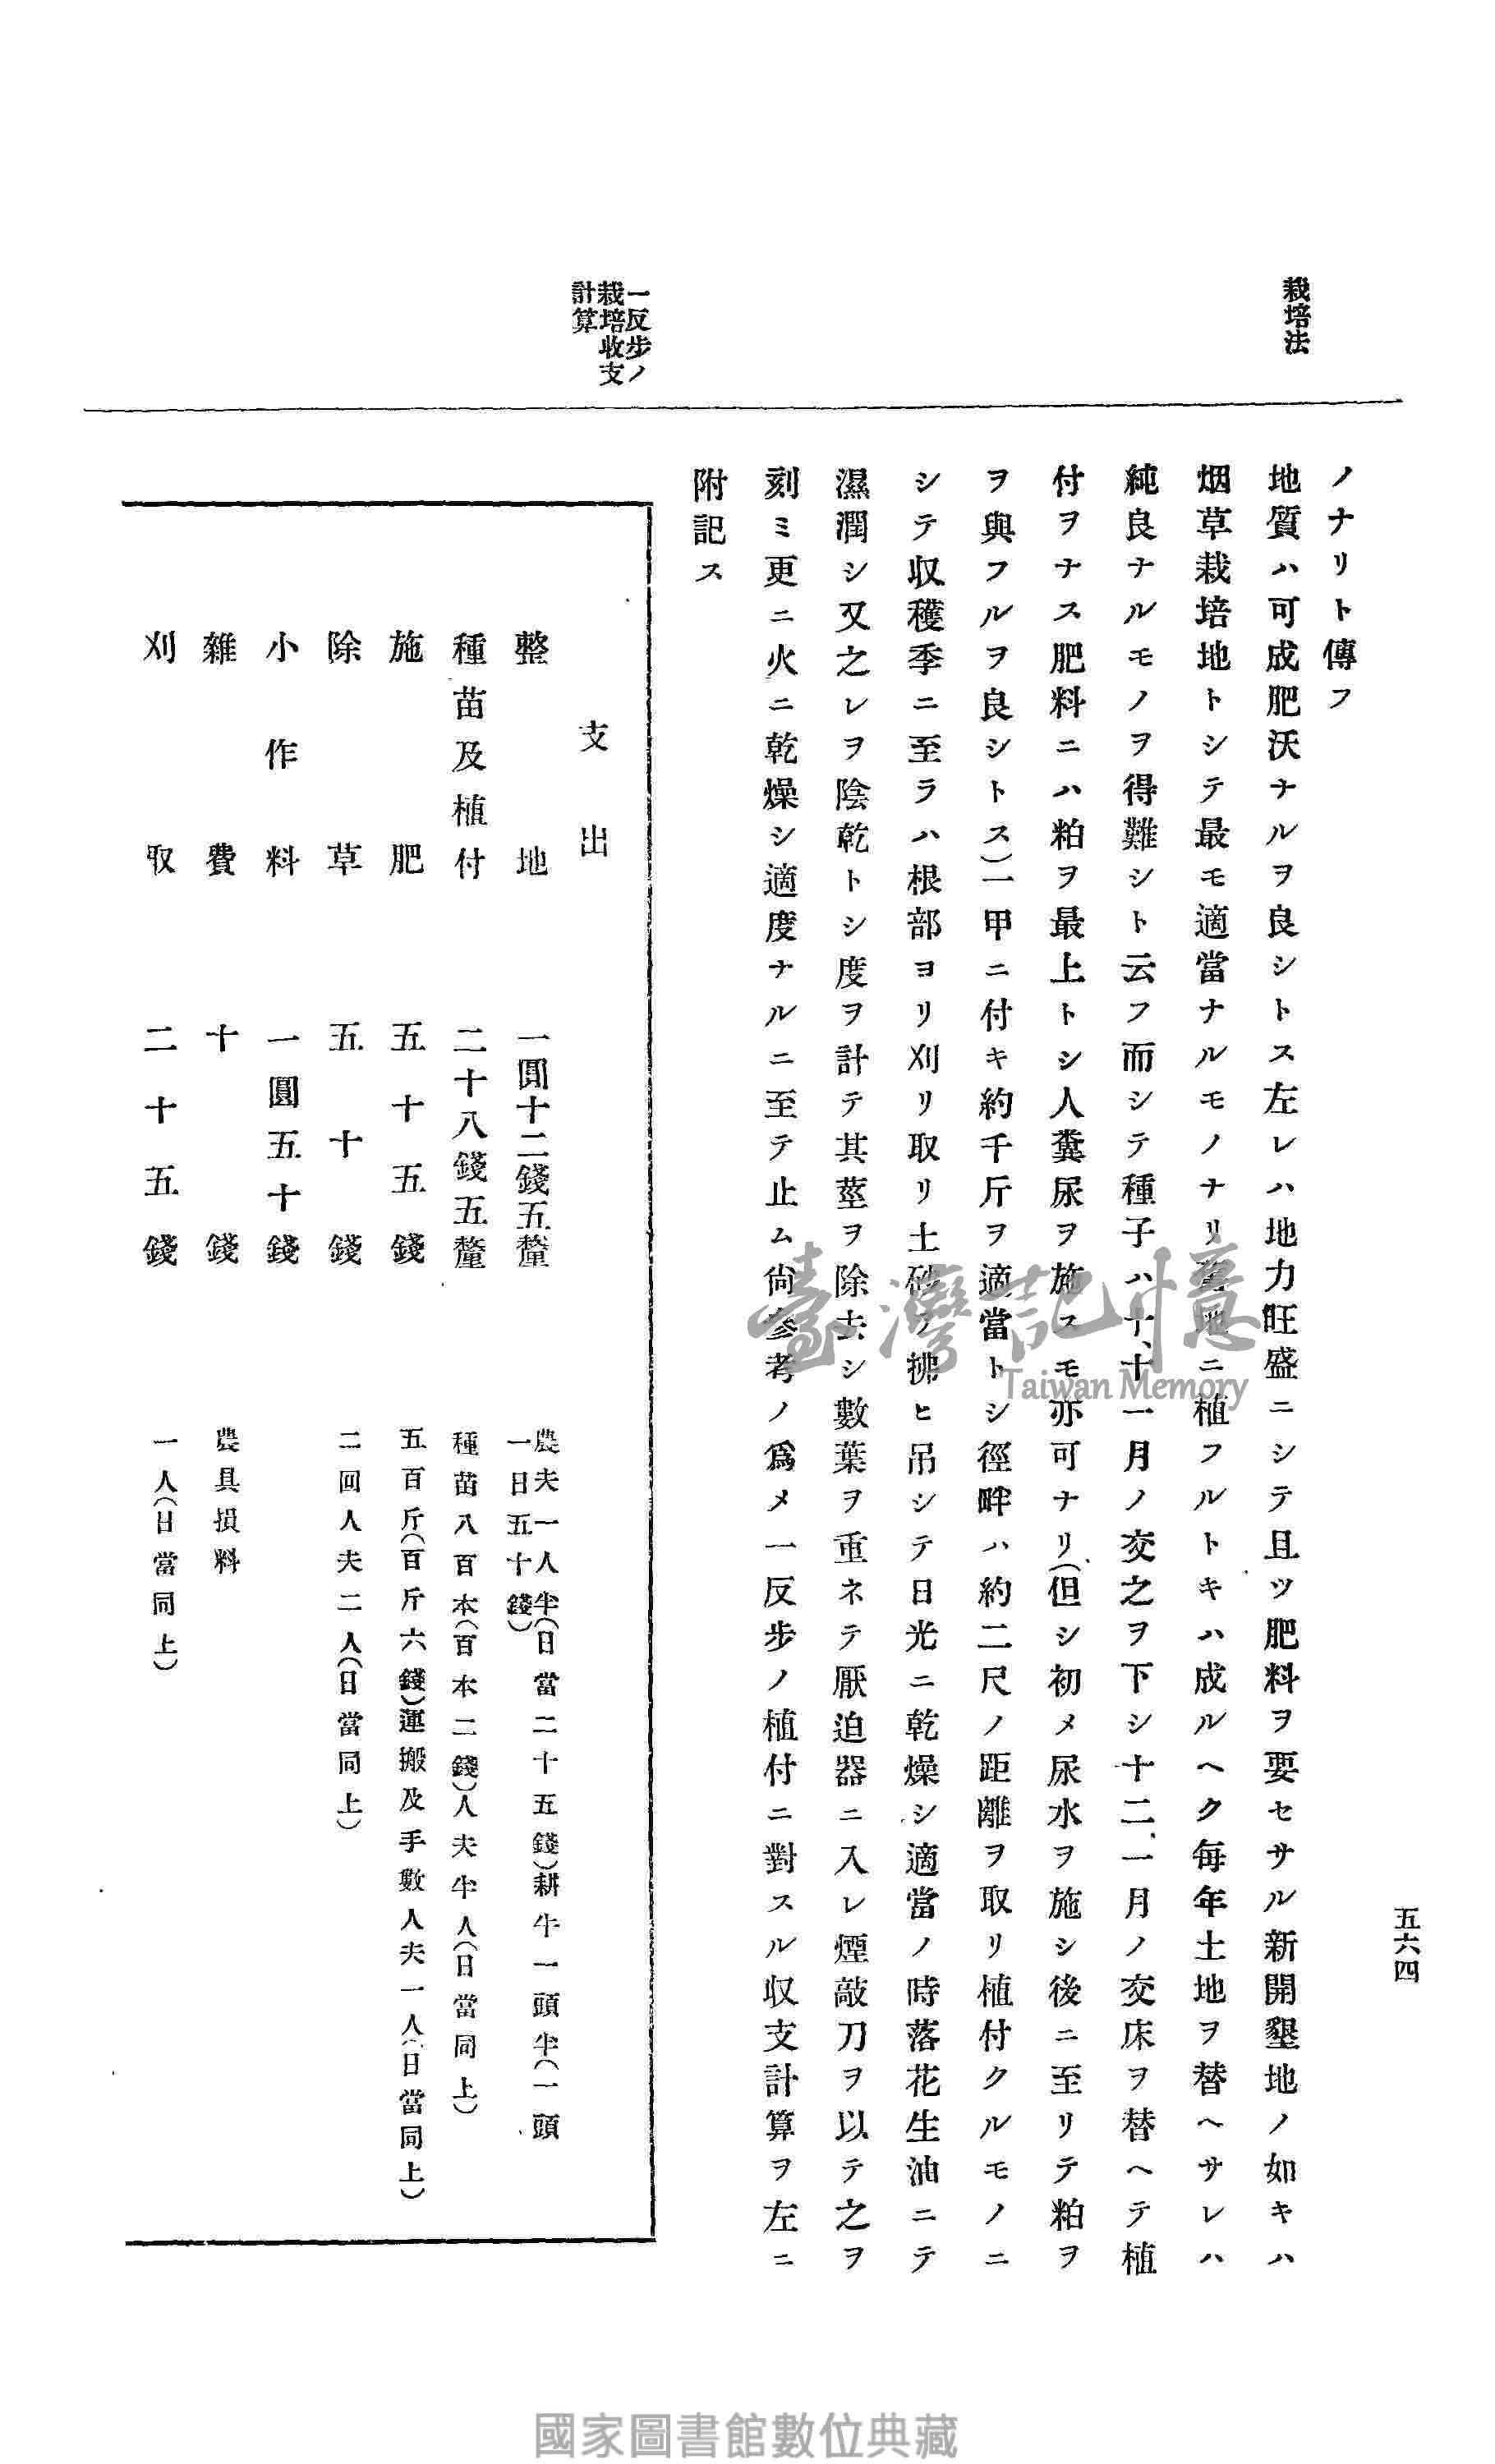 五六四
栽培法
ノナリト傳フ
地質ハ可成肥沃ナルヲ良シトス左レハ地力旺盛ニシテ且ツ肥料ヲ要セサル新開墾地ノ如キハ
烟草栽培地トシテ最モ適當ナルモノナリ舊地ニ植フルトキハ成ルヘク毎年土地ヲ替ヘサレハ
純良ナルモノヲ得難シト云フ而シテ種子ハ十、十一月ノ交之ヲ下シ十二、一月ノ交床ヲ替ヘテ植
付ヲナス肥料ニハ粕ヲ最上トシ人糞尿ヲ施スモ亦可ナリ(但シ初メ尿水ヲ施シ後ニ至リテ粕ヲ
ヲ與フルヲ良シトス)一甲ニ付キ約千斤ヲ適當トシ徑畔ハ約二尺ノ距離ヲ取リ植付クルモノニ
シテ収穫季ニ至ラハ根部ヨリ刈リ取リ土砂ヲ拂ヒ吊シテ日光ニ乾燥シ適當ノ時落花生油ニテ
濕潤シ又之レヲ陰乾トシ度ヲ計テ其莖ヲ除去シ數葉ヲ重ネテ厭迫器ニ入レ煙敲刀ヲ以テ之ヲ
刻ミ更ニ火ニ乾燥シ適度ナルニ至テ止ム尙參考ノ爲メ一反步ノ植付ニ對スル収支計算ヲ左ニ
附記ス
一反步ノ
栽培收支
計算
支出
整地 一圓十二錢五釐 農夫一人半(日當二十五錢)耕牛一頭半(一頭
一日五十錢)
種苗及植付 二十八錢五釐 種苗八百本(百本二錢)人夫半人(日當同上)
施肥 五十五錢 五百斤(百斤六錢)運搬及手數人夫一人(日當同上)
除草 五十錢 二回人夫二人(日當同上)
小作料 一圓五十錢
雜費 十錢 農具損料
刈取 二十五錢 一人(日當同上)
臺灣記憶
Taiwan Memory
國家圖書館數位典藏